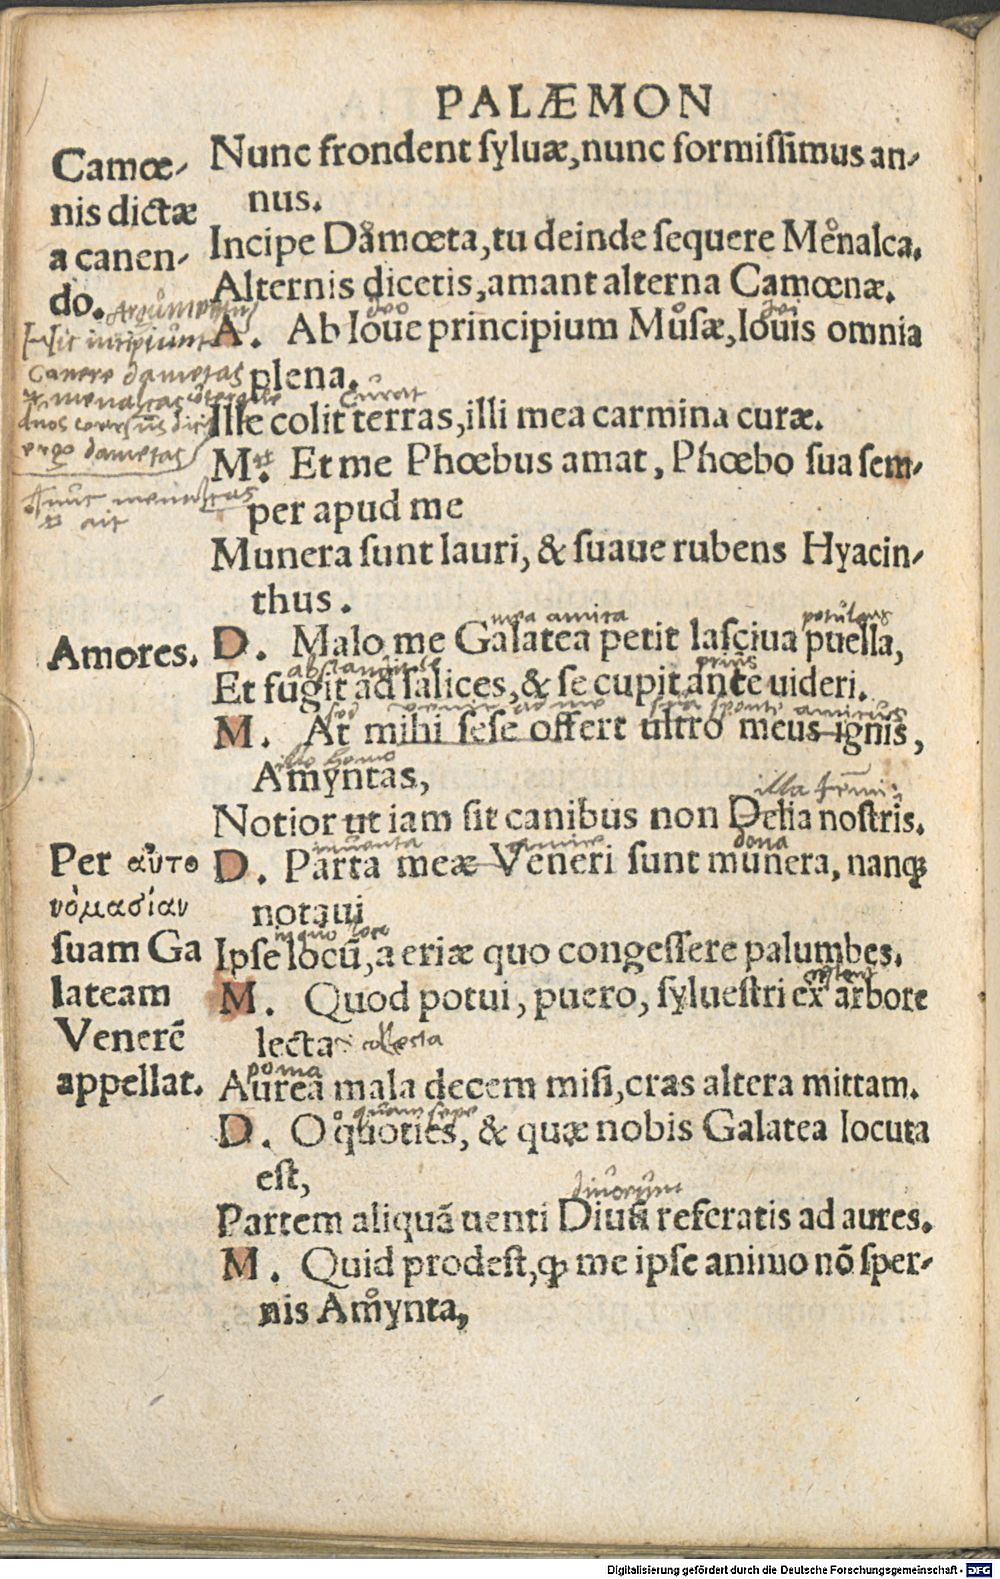 PALÆMON
Nunc frondent ſyluæ, nunc formiſſimus an-
nus.
Incipe Damœta, tu deinde ſequere Menalca.
Alternis dicetis, amant alterna Camœnæ.
Camœ-
nis dictæ
a canen-
do.
Hic incipiunt
Canere dametas
ergo dametas
ait
deo
A. Ab Ioue principium Muſæ, Iouis omnia
plena.
curat
Ille colit terras, illi mea carmina curæ.
M. Et me Phœbus amat, Phœbo sua sem-
per apud me
Munera ſunt lauri, & ſuaue rubens Hyacin-
thus.
Amores.
mea amica
D. Malo me Galatea petit laſciua puella,
prius
Et fugit ad ſalices, & ſe cupit ante uideri.
amicus
M. At mihi ſeſe offert ultro meus ignis,
ille homo
Amyntas,
illa
Notior ut iam sit canibus non Delia noſtris.
Per αὐτο
νὁμασίαν
ſuam Ga
lateam
Venerē
appellat.
dona
D. Parta meæ Veneri ſunt munera, nanq;
notaui
in quo loco
Ipſe locū, aeriæ quo congeſſere palumbes.
M. Quod potui, puero, ſylueſtri ex arbore
lecta collecta
poma
Aurea mala decem miſi, cras altera mittam.
quam sepe
D. O quoties, & quæ nobis Galatea locuta
eſt,
diuorum
Partem aliquā uenti Diuū referatis ad aures.
M. Quid prodeſt, ꝙ me ipſe animo nō ſper-
nis Amynta,
Digitalisierung gefördert durch die Deutsche Forschungsgemeinschaft - DFG